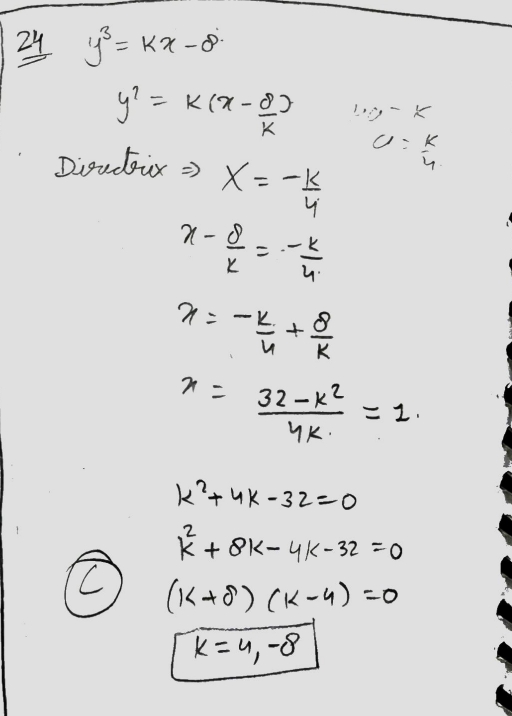 24 y³ = kx - 8
y² = k(x - 8/k)
a = k/4
Directrix ⇒ X = -k/4
x - 8/k = -k/4
x = -k/4 + 8/k
x = (32 - k²)/4k = 1.
k² + 4k - 32 = 0
k² + 8k - 4k - 32 = 0
C (k + 8) (k - 4) = 0
k = 4, -8